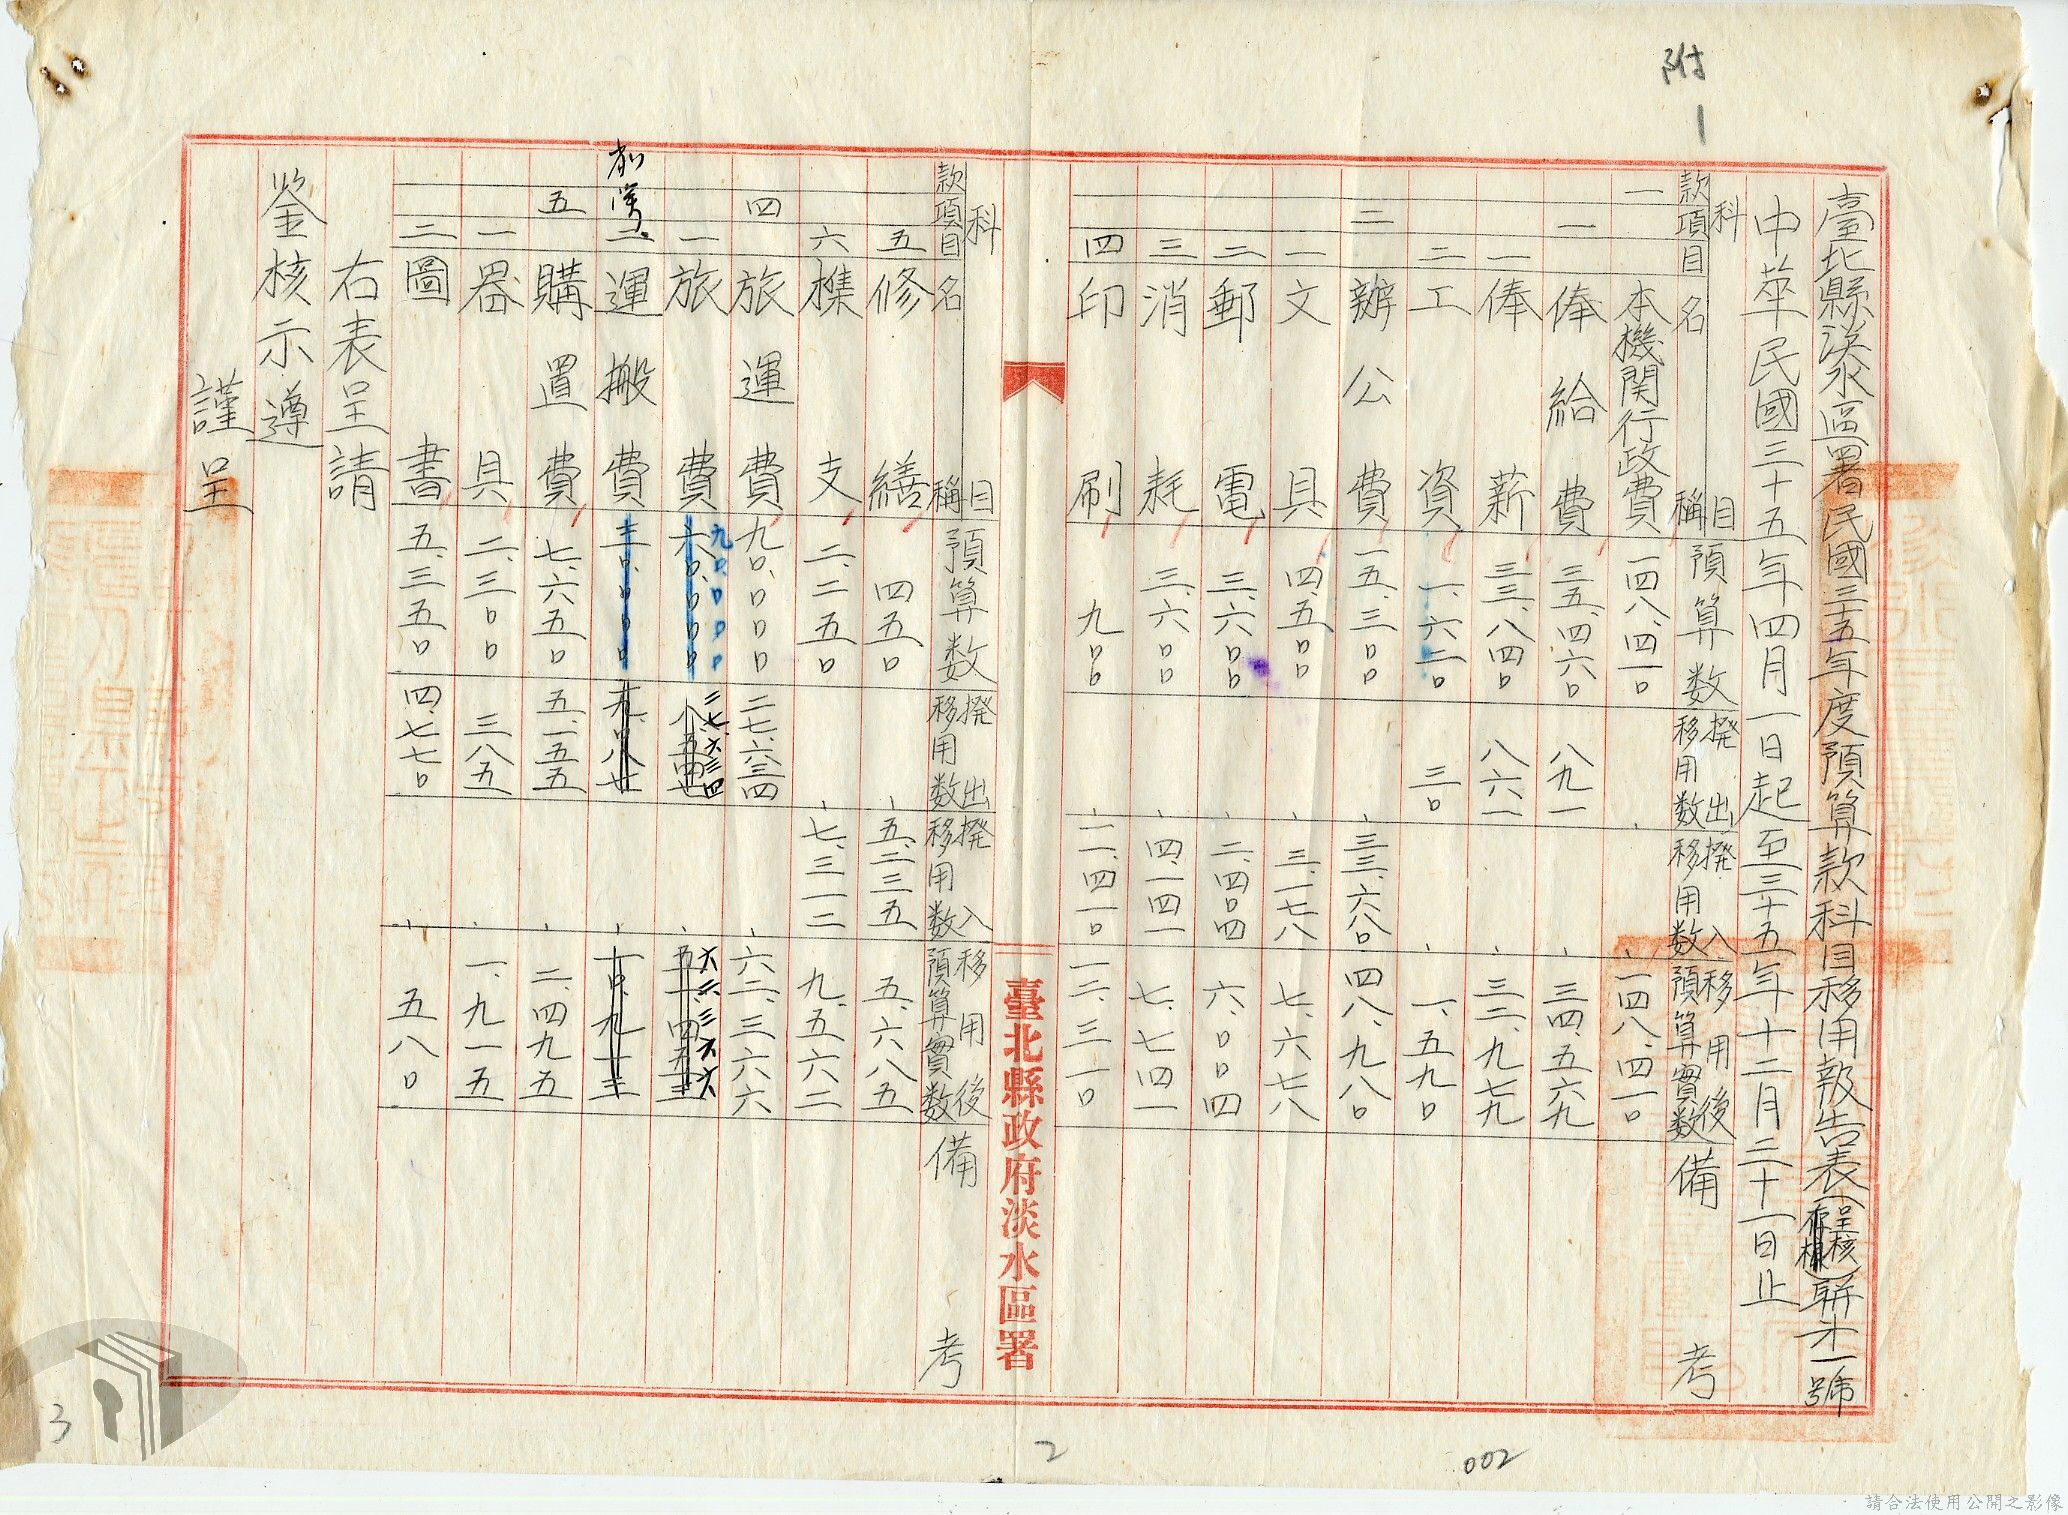 附
1
臺北縣淡水區署民國三十五年度預算款科目移用報告表(呈核)聯才一號
中華民國三十五年四月一日起至三十五年十二月三十一日止
科目
款項目名稱 預算数 撥出移用数 撥入移用数 移用後預算實数 備考
一 本機関行政費 一四八、四一〇 一四八、四一〇
一 俸給費 三五、四六〇 八九一 三四、五六九
一 俸薪 三三、八四〇 八六一 三二、九七九
二 工資 一、六二〇 三〇 一、五九〇
二 辦公費 一五、三〇〇 三三、六八〇 四八、九八〇
一 文具 四、五〇〇 三、一七八 七、六七八
二 郵電 三、六〇〇 二、四〇四 六、〇〇四
三 消耗 三、六〇〇 四、一四一 七、七四一
四 印刷 九〇〇 一一、四一〇 一二、三一〇
臺北縣政府淡水區署
科目
款項目名稱 預算数 撥出移用数 撥入移用数 移用後預算實数 備考
五 修繕 四五〇 五、二三五 五、六八五
六 雜支 二、二五〇 七、三一二 九、五六二
四 旅運費 九〇、〇〇〇 二七、六三四 六二、三六六
一 旅費 九〇、〇〇〇 二七、六三四 六二、三六六
二 運搬費
五 購置費 七、六五〇 五、一五五 二、四九五
一 器具 二、三〇〇 三八五 一、九一五
二 圖書 五、三五〇 四、七七〇 五八〇
右表呈請
鉴核示遵
謹呈
3
2
002
請合法使用公開之影像